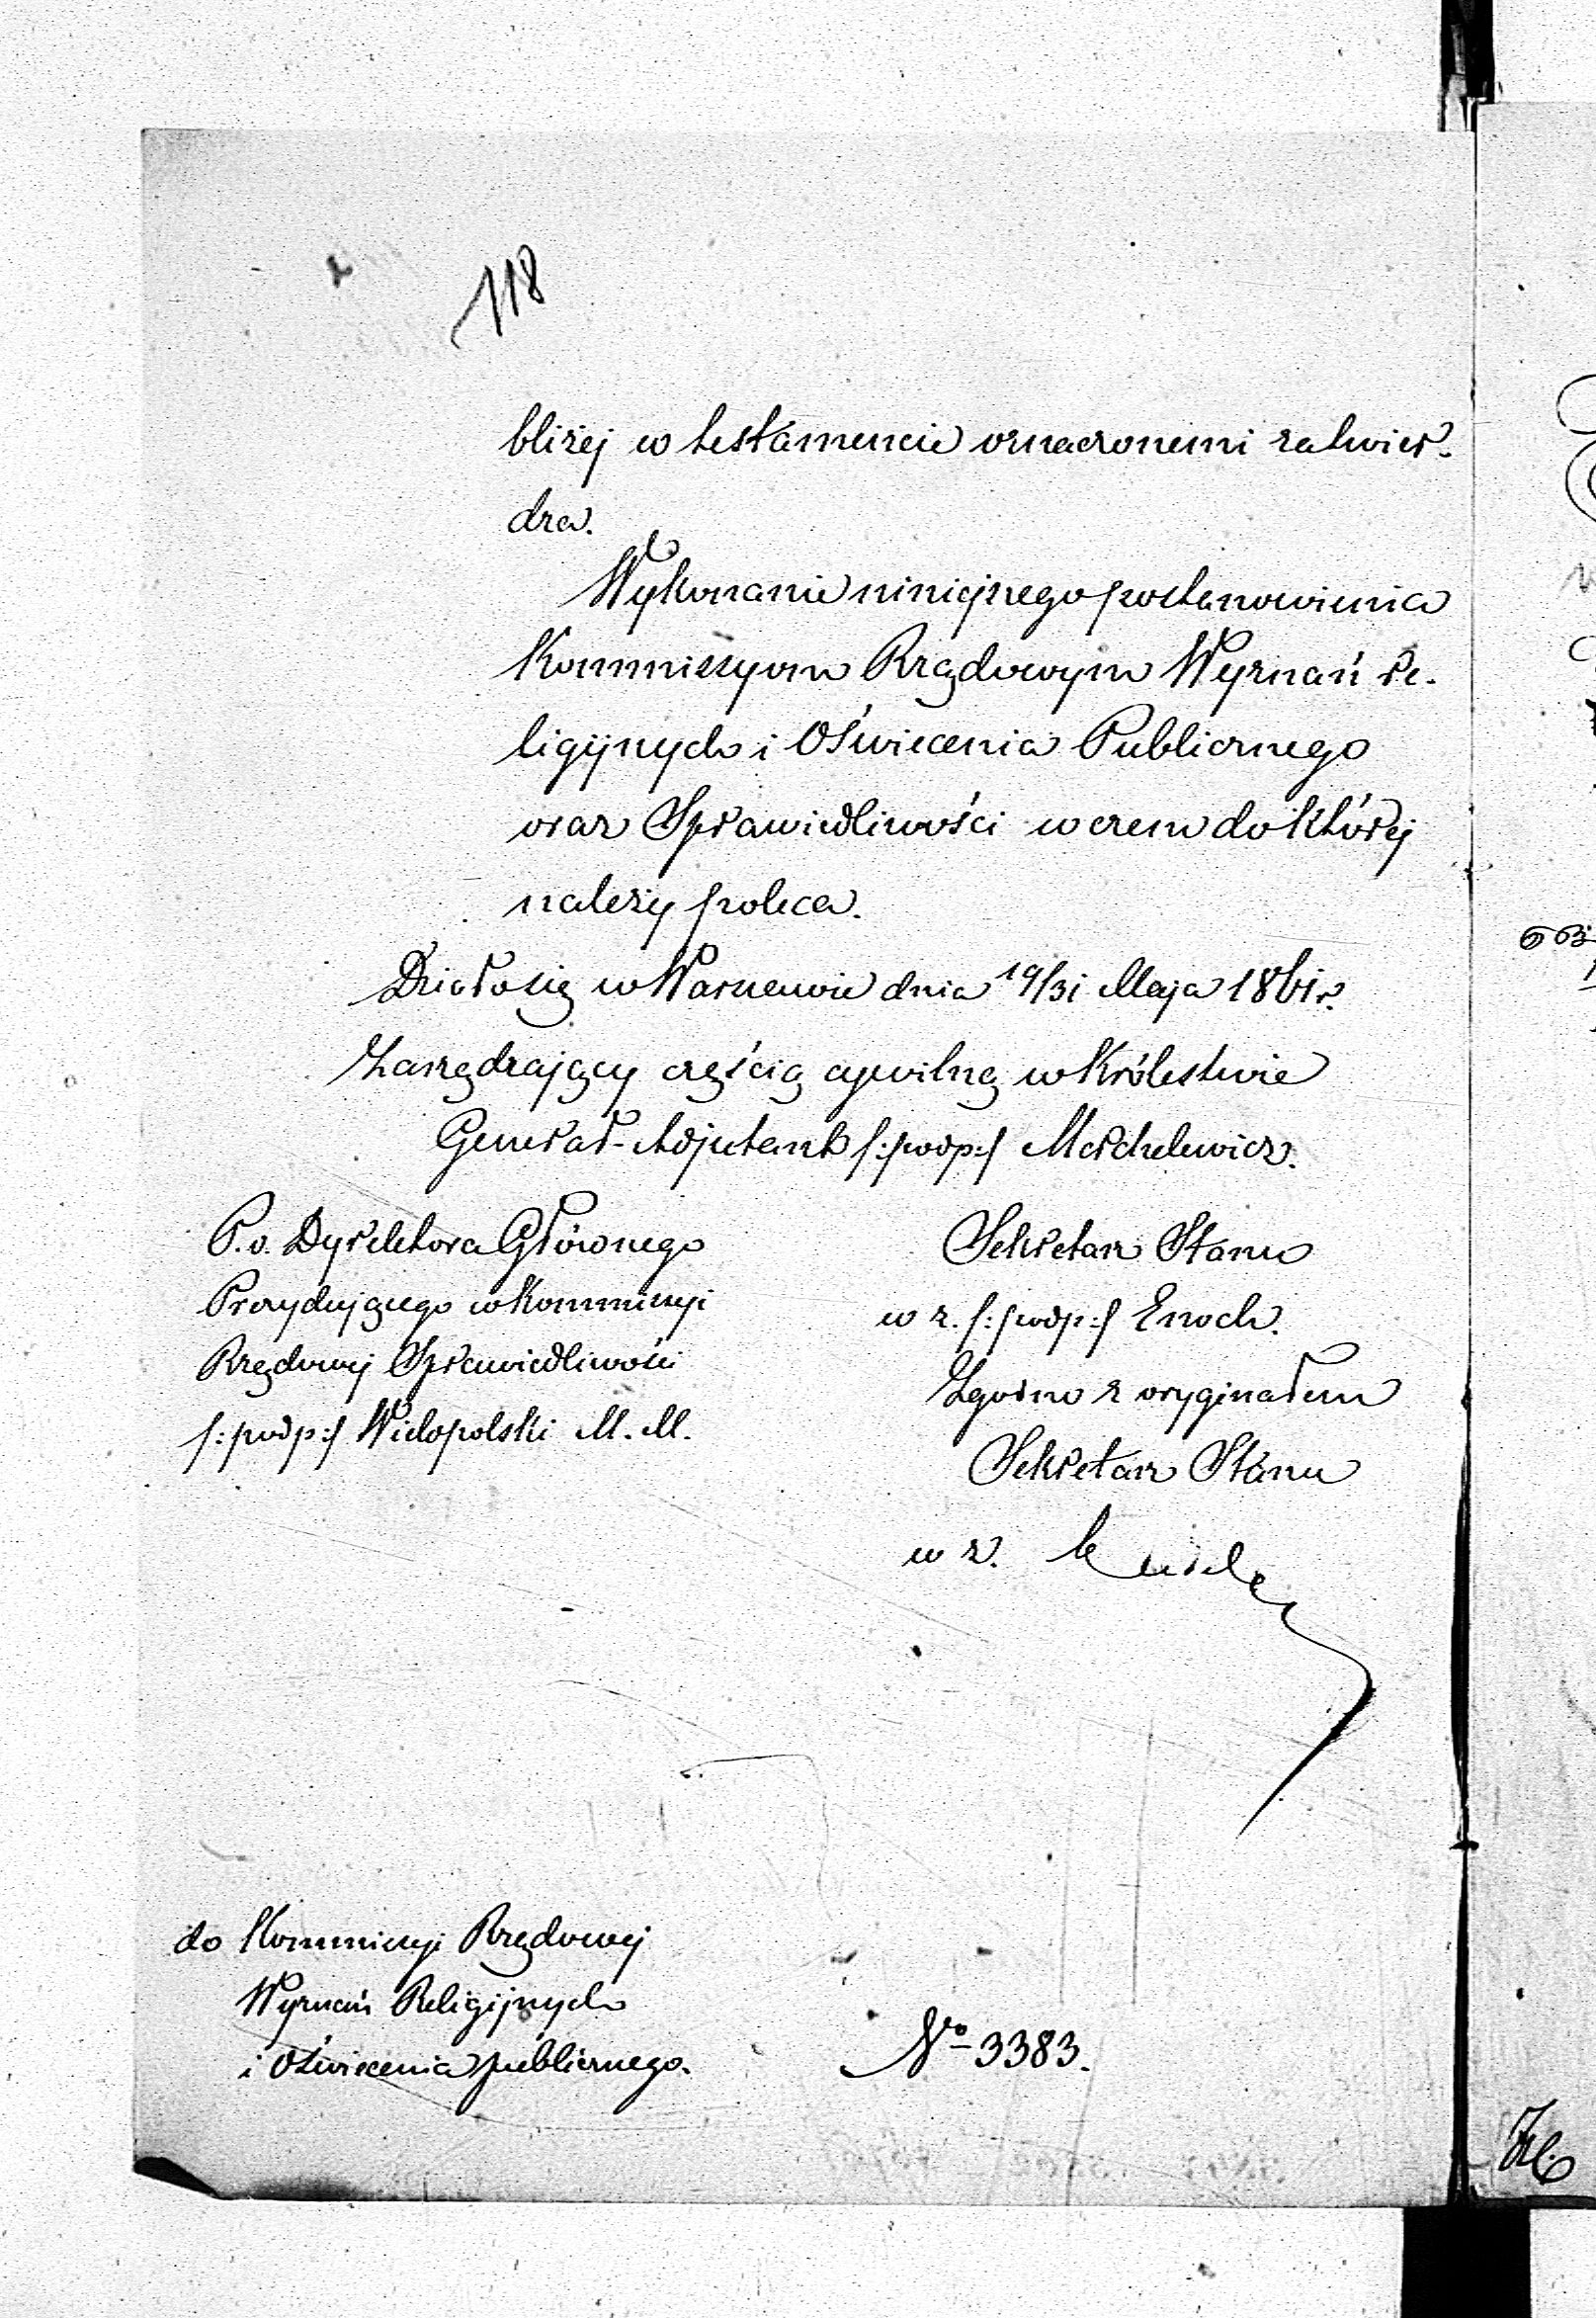 118
bliżej w testamencie oznaczonemi zatwier-
dza.
Wykonanie niniejszego postanowienia
Kommissyom Rządowym Wyznań Re-
ligijnych i Oświecenia Publicznego
oraz Sprawiedliwości w czem do której
należy poleca.
Działo się w Warszawie dnia 19/31 Maja 1861 r.
Zarządzający częścią cywilną w Królestwie
Generał-Adjutant /:podp:/ Merchelewicz.
P. o. Dyrektora Głównego
Prezydującego w Kommissyi
Rządowej Sprawiedliwości
/:podp:/ Wielopolski M. M.
Sekretarz Stanu
w z. /:podp:/ Enoch.
Zgodno z oryginałem
Sekretarz Stanu
w z.
do Kommissyi Rządowej
Wyznań Religijnych
i Oświecenia publicznego.
No 3383.